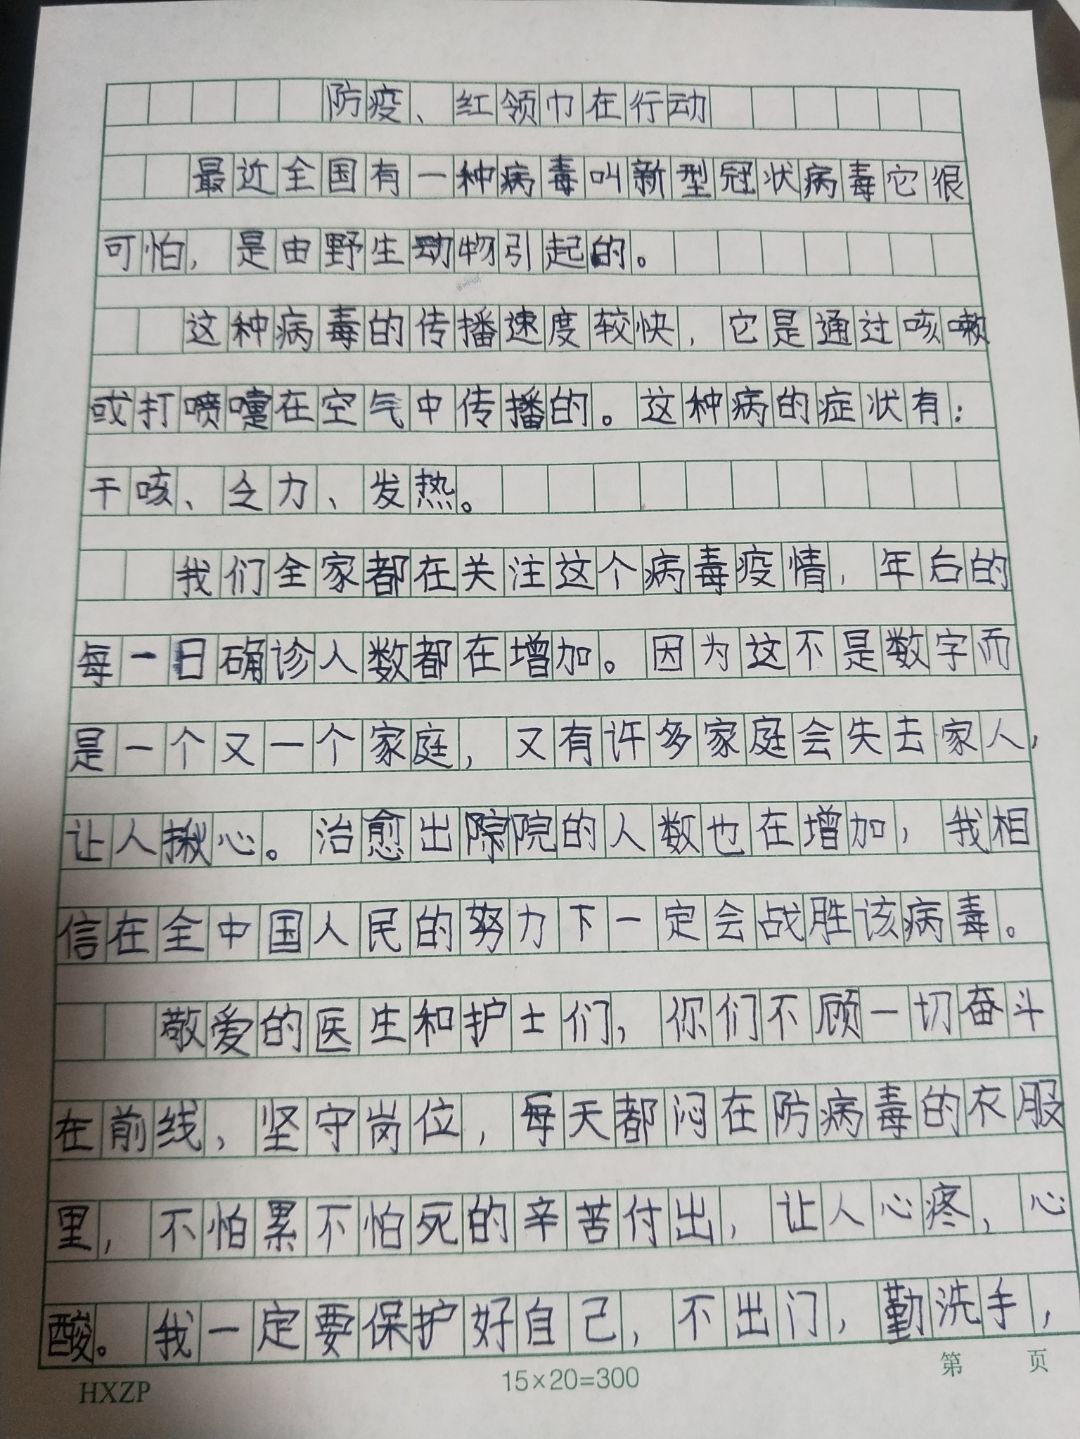 防疫、红领巾在行动
最近全国有一种病毒叫新型冠状病毒它很
可怕，是由野生动物引起的。
这种病毒的传播速度较快，它是通过咳嗽
或打喷嚏在空气中传播的。这种病的症状有：
干咳、乏力、发热。
我们全家都在关注这个病毒疫情，年后的
每一日确诊人数都在增加。因为这不是数字而
是一个又一个家庭，又有许多家庭会失去家人，
让人揪心。治愈出院的人数也在增加，我相
信在全中国人民的努力下一定会战胜该病毒。
敬爱的医生和护士们，你们不顾一切奋斗
在前线，坚守岗位，每天都闷在防病毒的衣服
里，不怕累不怕死的辛苦付出，让人心疼，心
酸。我一定要保护好自己，不出门，勤洗手，
HXZP 15×20=300 第 页